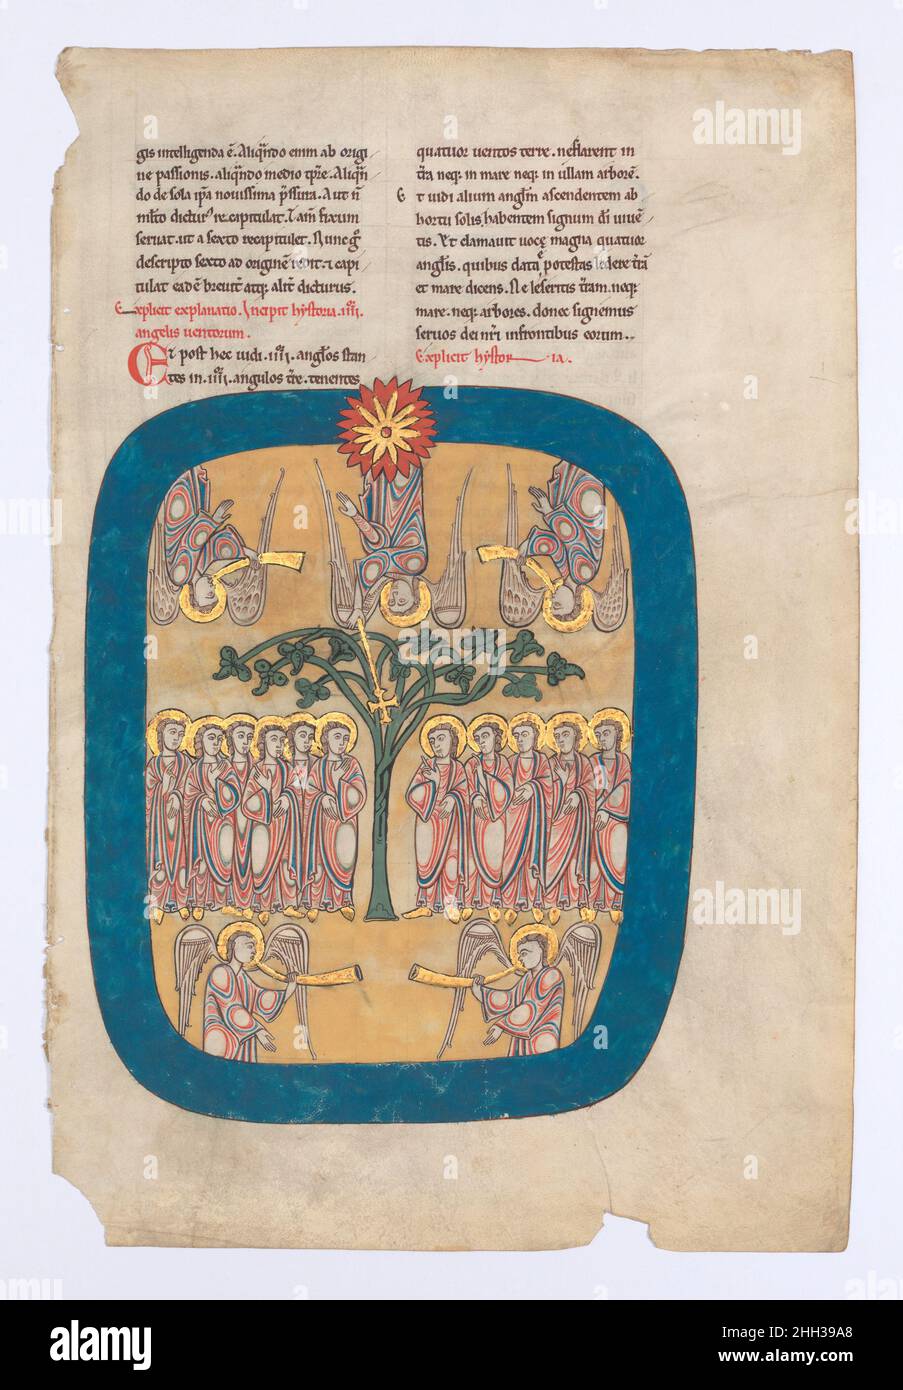 gis intelligenda ē. Aliqn̄do enim ab origi
ne passionis. aliqn̄do medio tp̄re. Aliqn̄
do de sola ip̄a novissima p̄ssura. Aut n̄
dictur' recapitulat. fixum
servat. ut a sexto recapitulet. Nunc g̊
descripto sexto ad originē redit. ⁊ capi
tulat eadē brevit̄ atq; alit̄ dicturus.
Explicit explanatio. Incipit hystoria .iiij.
angelis ventorum.
Et post hec vidi .iiij. angl̄os stan
tes in .iiij. angulos tr̄e. tenentes
quatuor ventos terre. ne flarent in
tr̄a neq; in mare neq; in ullam arborē.
Et vidi alium angl̄m ascendentem ab
hortu solis, habentem signum dī viven
tis. Et clamavit voce magna quatuor
angl̄is. quibus data ē potestas ledere tr̄ā
et mare dicens. Ne leseritis tr̄am. neq;
mare. neq; arbores. donec signemus
servos dei nr̄i in frontibus eorum.
Explicit hystoria.
alamy
a
alamy
Image ID: 2HH39A8
www.alamy.com